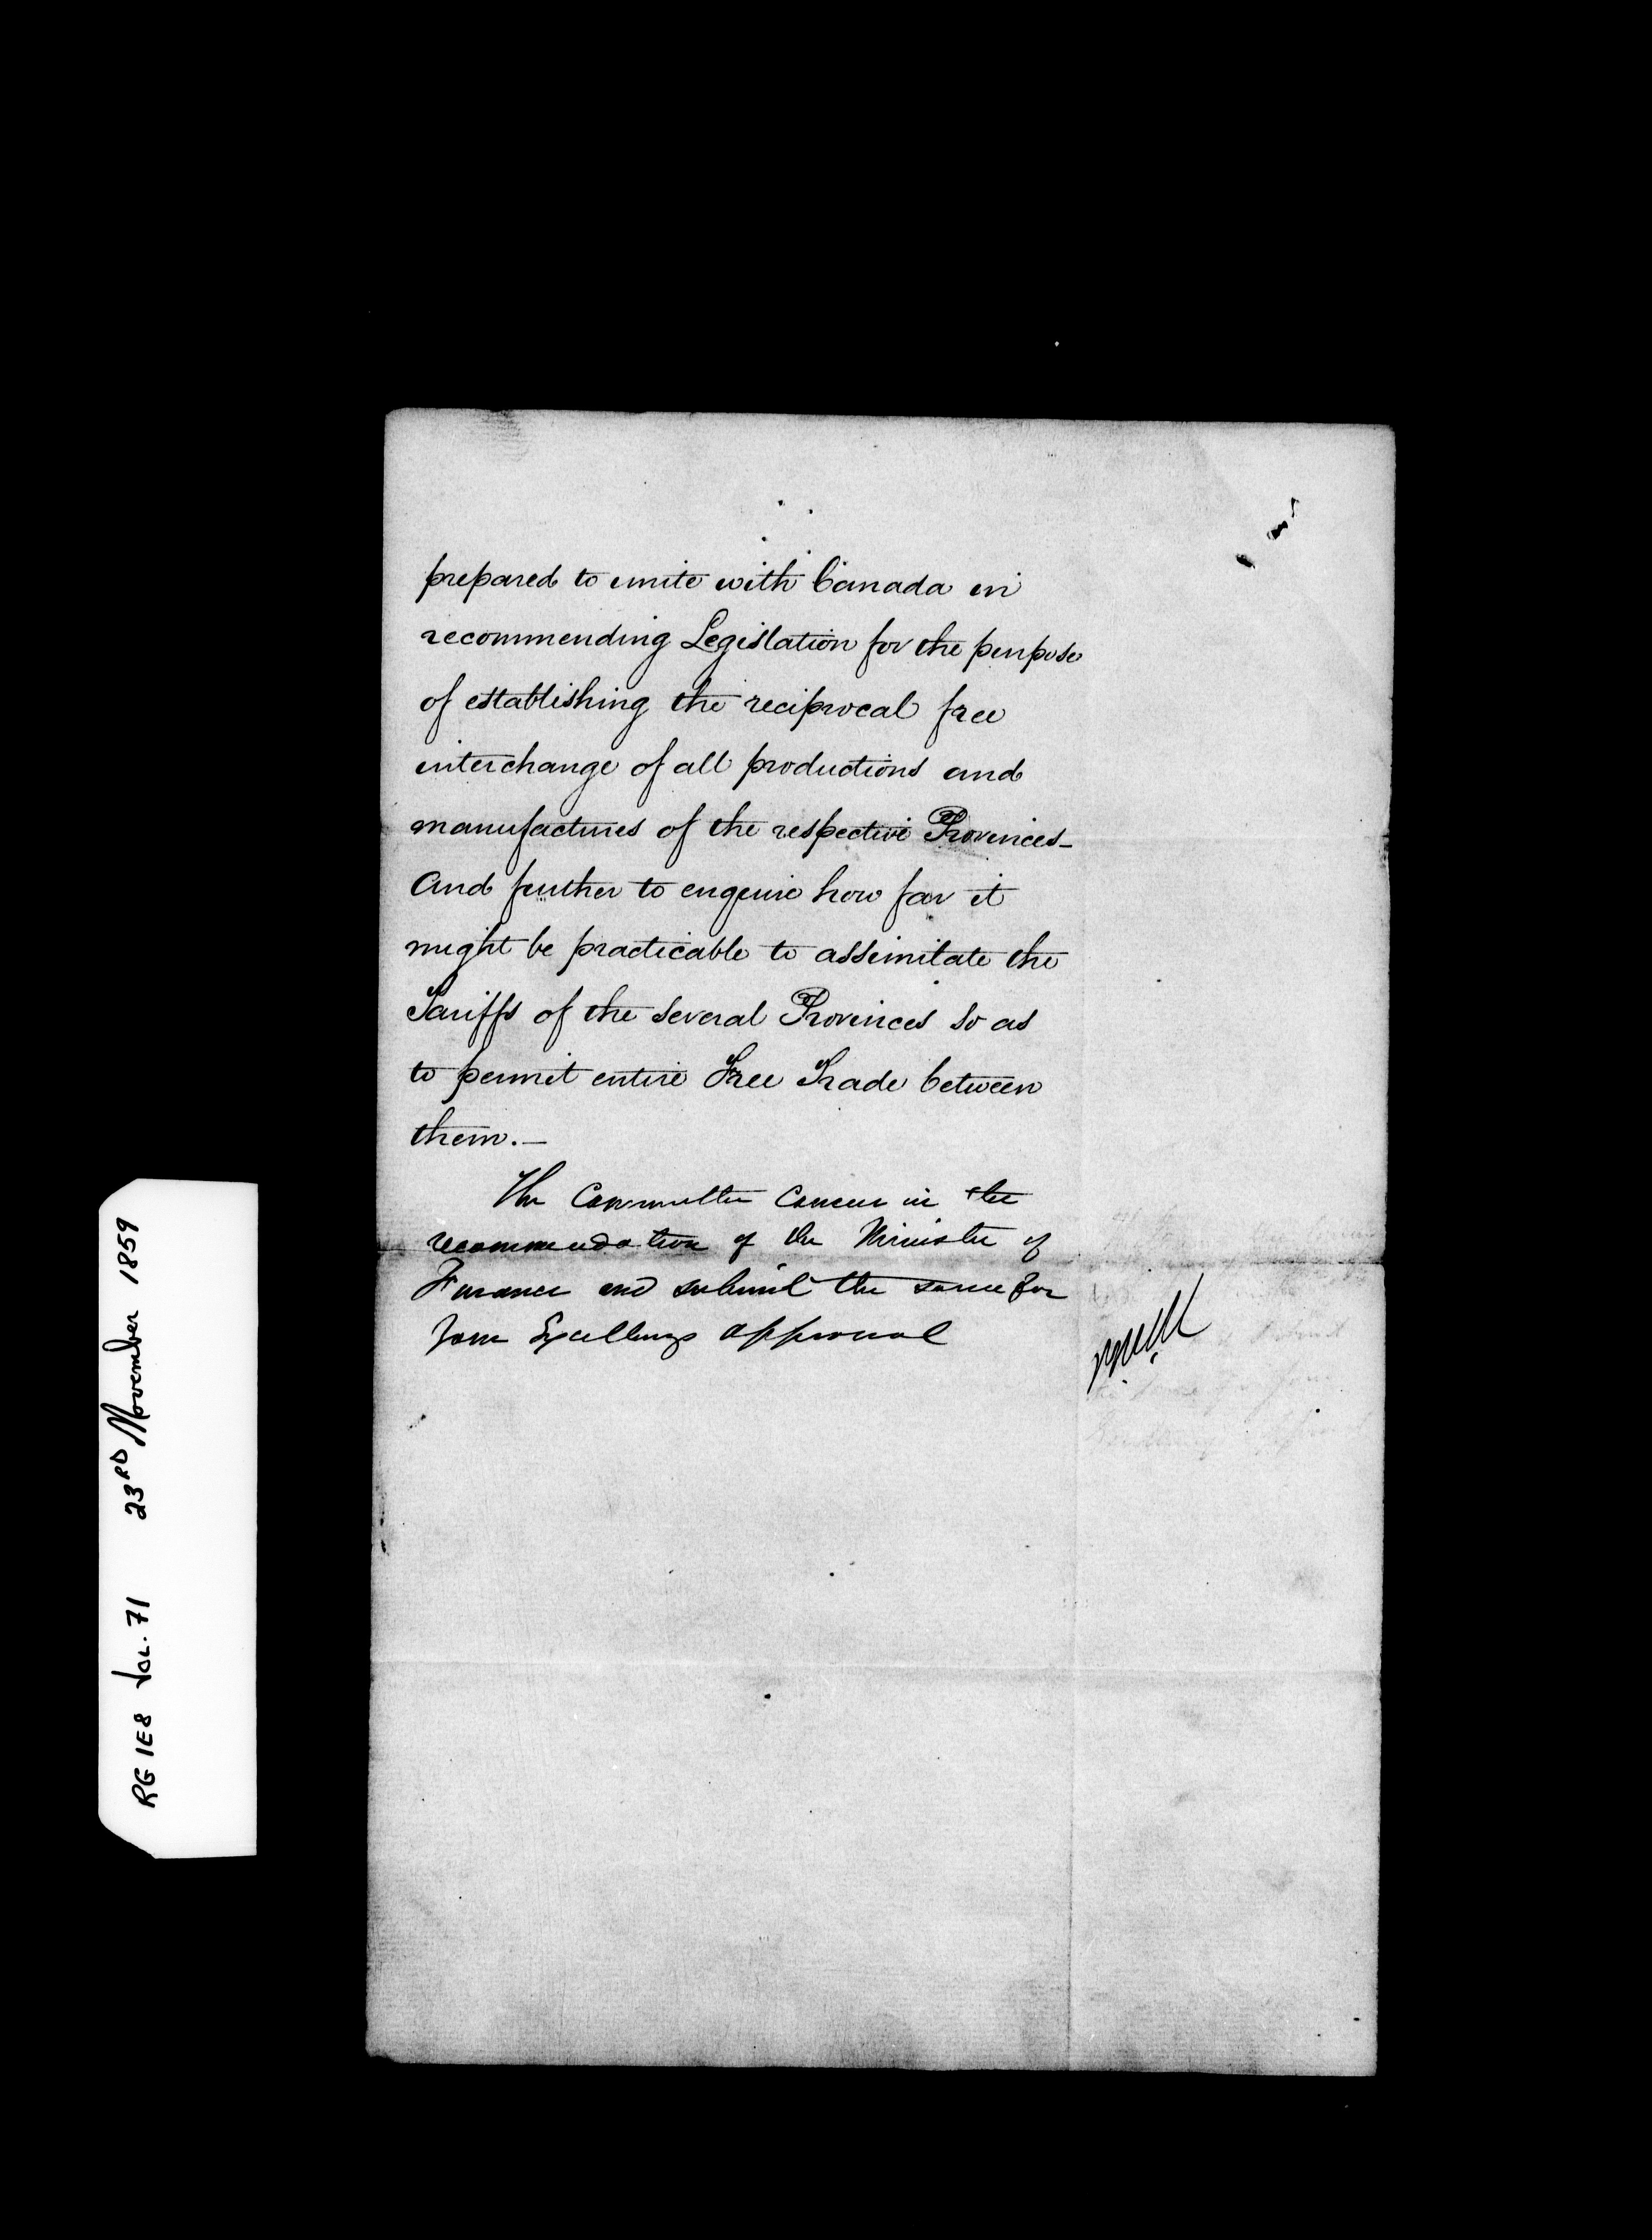 prepared to unite with Canada in
recommending Legislation for the purpose
of establishing the reciprocal free
interchange of all productions and
manufactures of the respective Provinces_
And further to enquire how far it
might be practicable to assimilate the
Tariffs of the several Provinces so as
to permit entire Free Trade between
them._
The Committee concur in the
recommendation of the Minister of
Finance and submit the same for
Your Excellency's approval
RG 1E8 Vol. 71 23RD November 1859